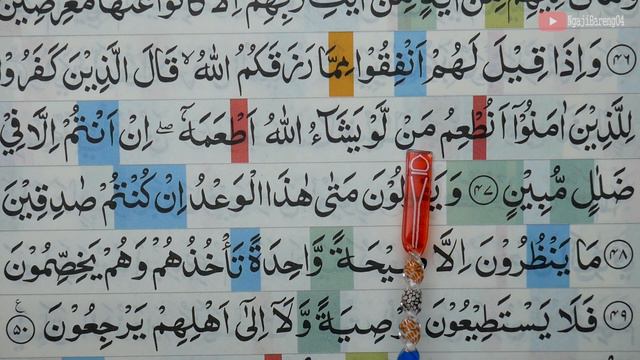 NgajiBareng04
مِّنْ اٰيٰتِ رَبِّهِمْ اِلَّا كَانُوْا عَنْهَا مُعْرِضِيْنَ
﴿٤٦﴾ وَاِذَا قِيْلَ لَهُمْ اَنْفِقُوْا مِمَّا رَزَقَكُمُ اللّٰهُ ۙ قَالَ الَّذِيْنَ كَفَرُوْا
لِلَّذِيْنَ اٰمَنُوْٓا اَنُطْعِمُ مَنْ لَّوْ يَشَاۤءُ اللّٰهُ اَطْعَمَهٗٓ ۖ اِنْ اَنْتُمْ اِلَّا فِيْ
ضَلٰلٍ مُّبِيْنٍ ﴿٤٧﴾ وَيَقُوْلُوْنَ مَتٰى هٰذَا الْوَعْدُ اِنْ كُنْتُمْ صٰدِقِيْنَ
﴿٤٨﴾ مَا يَنْظُرُوْنَ اِلَّا صَيْحَةً وَّاحِدَةً تَأْخُذُهُمْ وَهُمْ يَخِصِّمُوْنَ
﴿٤٩﴾ فَلَا يَسْتَطِيْعُوْنَ تَوْصِيَةً وَّلَآ اِلٰٓى اَهْلِهِمْ يَرْجِعُوْنَ ﴿٥٠﴾ ع